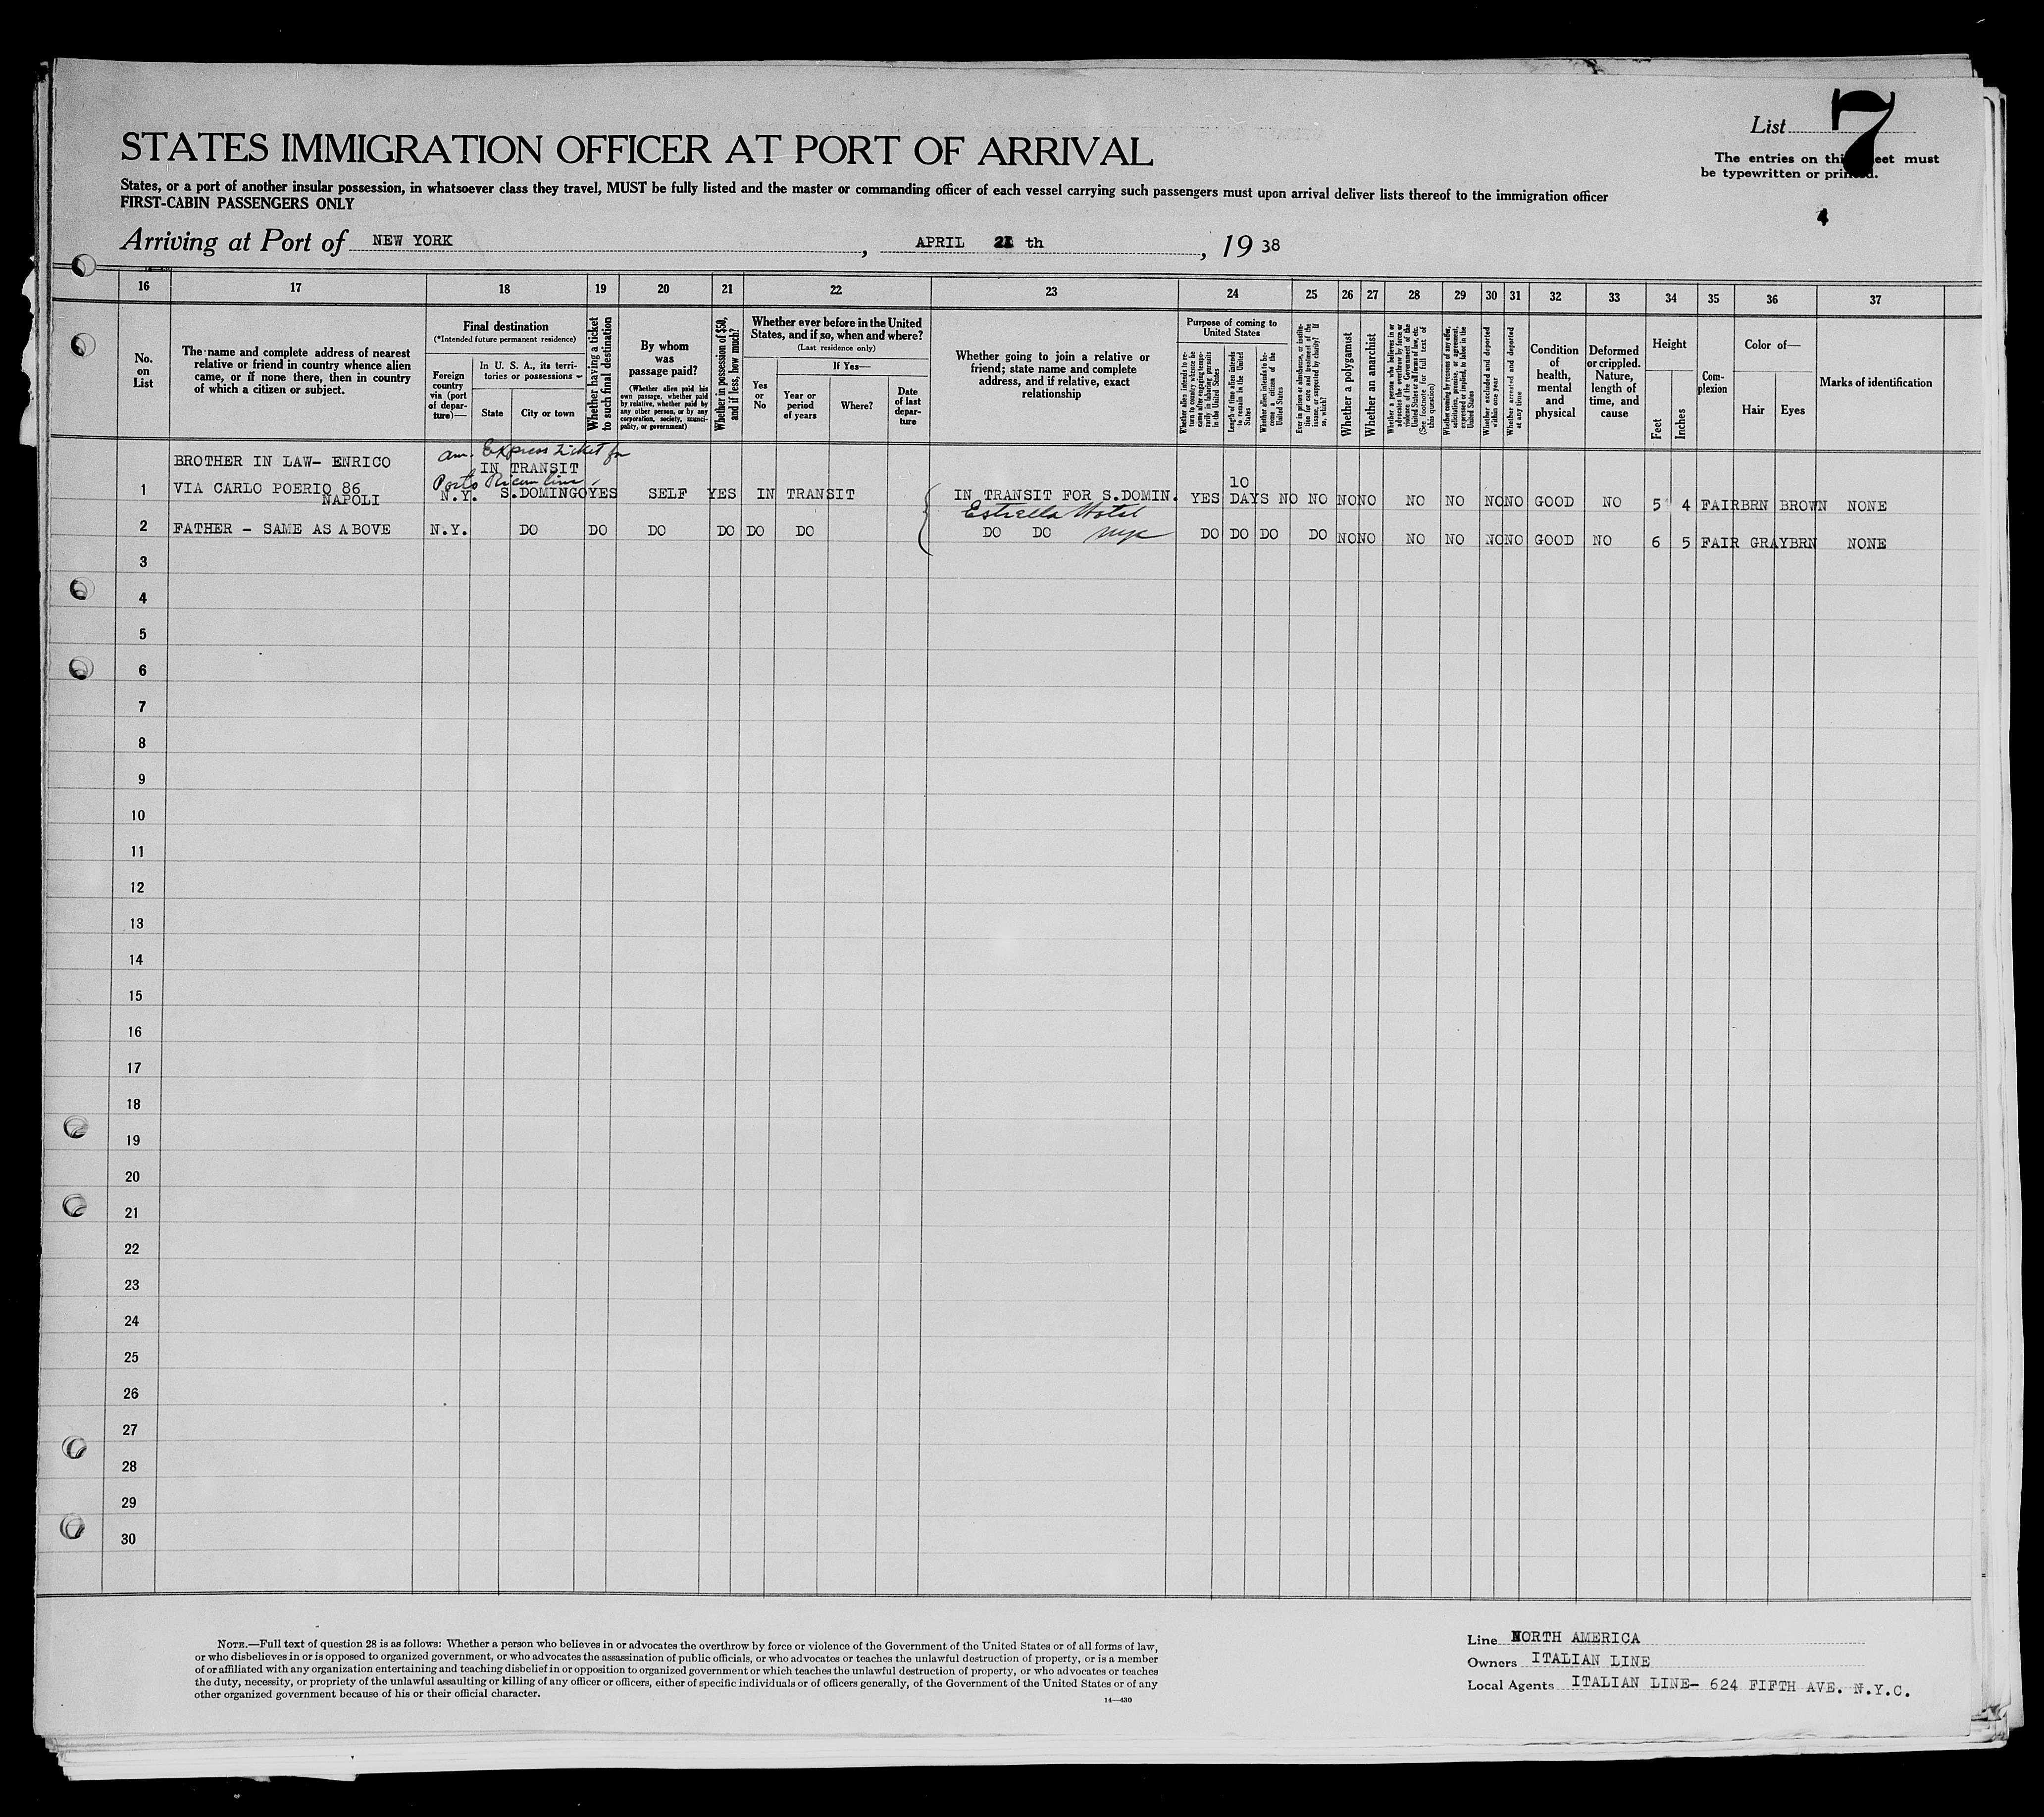 List 7
The entries on this sheet must
be typewritten or printed.
4
STATES IMMIGRATION OFFICER AT PORT OF ARRIVAL
States, or a port of another insular possession, in whatsoever class they travel, MUST be fully listed and the master or commanding officer of each vessel carrying such passengers must upon arrival deliver lists thereof to the immigration officer
FIRST-CABIN PASSENGERS ONLY
Arriving at Port of NEW YORK, APRIL 21 th, 19 38
16 17 18 19 20 21 22 23 24 25 26 27 28 29 30 31 32 33 34 35 36 37
No.
on
List
The name and complete address of nearest
relative or friend in country whence alien
came, or if none there, then in country
of which a citizen or subject.
Final destination
(*Intended future permanent residence)
Foreign
country
via (port
of depar-
ture)—
In U. S. A., its terri-
tories or possessions
State City or town
Whether having a ticket
to such final destination
By whom
was
passage paid?
(Whether alien paid his
own passage, whether paid
by relative, whether paid by
any other person, or by any
corporation, society, munici-
pality, or government)
Whether in possession of $50,
and if less, how much?
Whether ever before in the United
States, and if so, when and where?
(Last residence only)
Yes
or
No
If Yes—
Year or
period
of years
Where?
Date
of last
depar-
ture
Whether going to join a relative or
friend; state name and complete
address, and if relative, exact
relationship
Purpose of coming to
United States
Whether alien intends to re-
turn to country whence he
came after engaging tempo-
rarily in laboring pursuits
in the United States
Length of time alien intends
to remain in the United
States
Whether alien intends to be-
come a citizen of the
United States
Ever in prison or almshouse, or institu-
tion for care and treatment of the
insane, or supported by charity? If
so, which?
Whether a polygamist
Whether an anarchist
Whether a person who believes in or
advocates the overthrow by force or
violence of the Government of the
United States or all forms of law, etc.
(See footnote for full text of
this question)
Whether coming by reason of any offer,
solicitation, promise, or agreement,
expressed or implied, to labor in the
United States
Whether excluded and deported
within one year
Whether arrested and deported
at any time
Condition
of
health,
mental
and
physical
Deformed
or crippled.
Nature,
length of
time, and
cause
Height
Feet Inches
Com-
plexion
Color of—
Hair Eyes
Marks of identification
Am. Express ticket for
BROTHER IN LAW- ENRICO IN TRANSIT
Porto Rican line
1 VIA CARLO POERIO 86 N.Y. S.DOMINGO YES SELF YES IN TRANSIT IN TRANSIT FOR S.DOMIN. YES 10 DAYS NO NO NO NO NO NO NO NO GOOD NO 5 4 FAIR BRN BROWN NONE
NAPOLI
Estrella Hotel
2 FATHER - SAME AS ABOVE N.Y. DO DO DO DO DO DO DO DO nyc DO DO DO DO NO NO NO NO NO NO GOOD NO 6 5 FAIR GRAY BRN NONE
3
4
5
6
7
8
9
10
11
12
13
14
15
16
17
18
19
20
21
22
23
24
25
26
27
28
29
30
NOTE.—Full text of question 28 is as follows: Whether a person who believes in or advocates the overthrow by force or violence of the Government of the United States or of all forms of law,
or who disbelieves in or is opposed to organized government, or who advocates the assassination of public officials, or who advocates or teaches the unlawful destruction of property, or is a member
of or affiliated with any organization entertaining and teaching disbelief in or opposition to organized government or which teaches the unlawful destruction of property, or who advocates or teaches
the duty, necessity, or propriety of the unlawful assaulting or killing of any officer or officers, either of specific individuals or of officers generally, of the Government of the United States or of any
other organized government because of his or their official character.
14—430
Line NORTH AMERICA
Owners ITALIAN LINE
Local Agents ITALIAN LINE- 624 FIFTH AVE. N.Y.C.